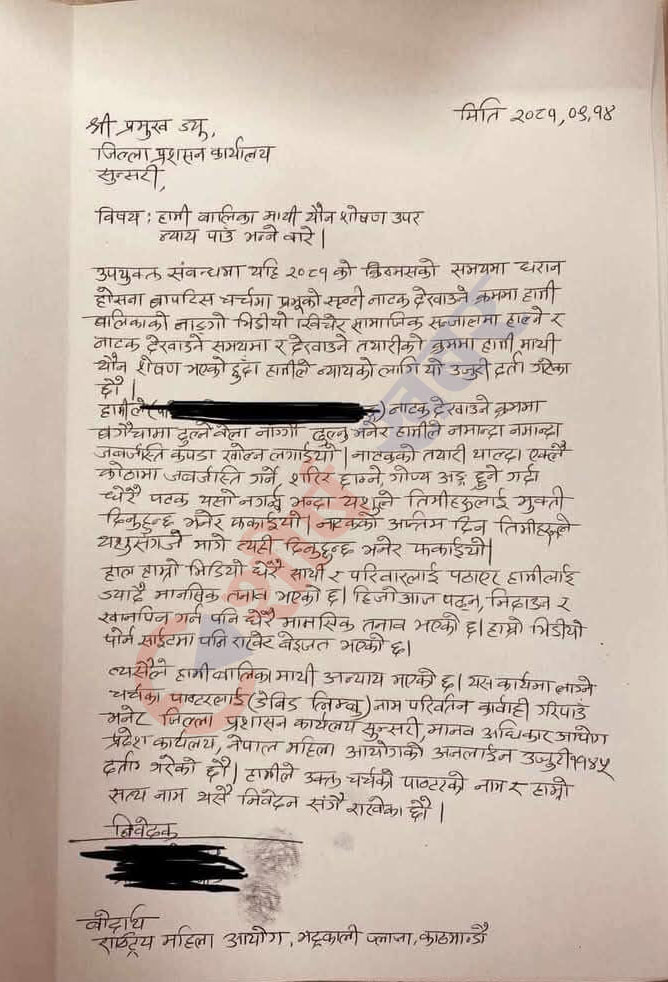 मिति २०८१,०९,१४
श्री प्रमुख ज्यू,
जिल्ला प्रशासन कार्यालय
सुन्सरी,
विषय: हामी बालिका माथी यौन शोषण उपर
न्याय पाउँ भन्ने बारे |
उपयुक्त संवन्धमा यहि २०८१ को क्रिसमसको समयमा धरान
होसना बापटिस चर्चमा प्रभूको सृष्टी नाटक देखाउने क्रममा हामी
बालिकाको नाङ्गो भिडीयो खिचेर सामाजिक सन्जालमा हाल्ने र
नाटक देखाउने समयमा र देखाउने तयारीको क्रममा हामी माथी
यौन शोषण भएको हुँदा हामीले न्यायको लागि यो उजुरी दर्ता गरेका
छौं |
हामीले नाटक देखाउने क्रममा
बगैंचामा डुल्ने बेला नाग्गै डुल्नु भनेर हामीले नमान्दा नमान्दा
जवर्जास्ति कपडा खोल्न लगाईयो | नाटकको तयारी थाल्दा एक्लै
कोठामा जवर्जास्ति गर्ने, शरिर छाम्ने, गोप्य अङ्ग छुने गर्दा
धेरै पटक यसो नगर्नु भन्दा यशुले तिमीहरुलाई मुक्ती
दिनुहुन्छ भनेर फकाईयो | नाटकको अन्तिम दिन तिमीहरुले
यशुसंग जे मागे त्यही दिनुहुन्छ भनेर फकाईयो |
हाल हाम्रो भिडियो धेरै साथी र परिवारलाई पठाएर हामीलाई
ज्यादै मानसिक तनाव भएको छ | हिजोआज पढ्न, निदाउन र
खानपिन गर्न पनि धेरै मानसिक तनाव भएको छ | हाम्रो भिडीयो
पोर्न साईटमा पनि राखेर बेइजत भएको छ |
त्यसैले हामी बालिका माथी अन्याय भएको छ | यस कार्यमा लाग्ने
चर्चका पाष्टरलाई (डेविड लिम्बू) नाम परिवर्तन कार्वाही गरिपाउँ
भनेर जिल्ला प्रशासन कार्यलय सुन्सरी, मानव अधिकार आयोग
प्रदेश कार्यलय, नेपाल महिला आयोगको अनलाईन उजुरी ११४५
दर्ता गरेको छौं | हामीले उक्त चर्चको पाष्टरको नाम र हाम्रो
सत्य नाम यसै निवेदन संगै राखेका छौं |
निवेदक
बोदार्थ
राष्ट्रिय महिला आयोग, भद्रकाली प्लाजा, काठमान्डौ